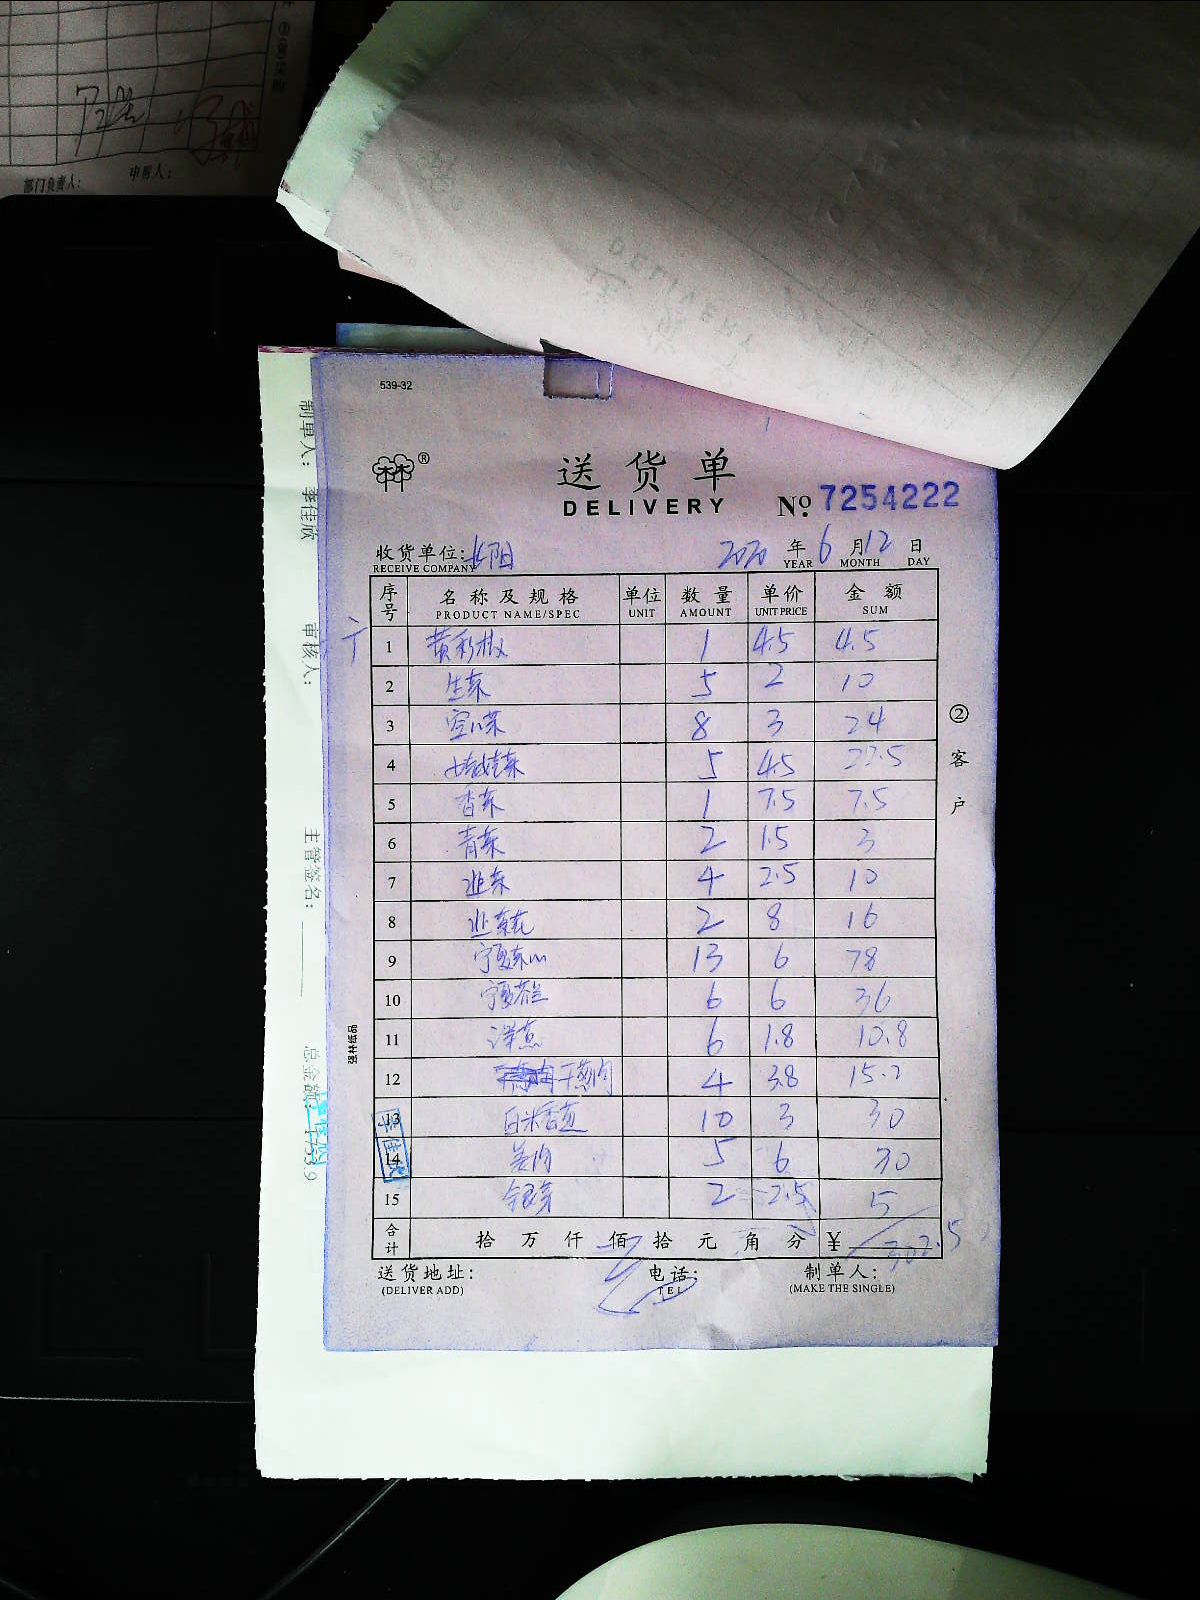 部门负责人: 申购人:
539-32
送货单
DELIVERY No 7254222
收货单位: 长阳 2020 年 6 月 12 日
RECEIVE COMPANY YEAR MONTH DAY
序号 名称及规格 单位 数量 单价 金额
PRODUCT NAME/SPEC UNIT AMOUNT UNIT PRICE SUM
1 黄彩椒 1 4.5 4.5
2 生菜 5 2 10
3 空心菜 8 3 24
4 娃娃菜 5 4.5 22.5
5 香菜 1 7.5 7.5
6 青菜 2 1.5 3
7 韭菜 4 2.5 10
8 韭菜花 2 8 16
9 宁夏菜心 13 6 78
10 宁夏芥兰 6 6 36
11 洋葱 6 1.8 10.8
12 干葱肉 4 3.8 15.2
13 白米香葱 10 3 30
14 姜肉 5 6 30
15 银芽 2 2.5 5
合计 拾 万 仟 佰 拾 元 角 分 ¥ 302.5
送货地址: 电话: 制单人:
(DELIVER ADD) TEL (MAKE THE SINGLE)
② 客户
强林纸品
制单人: 李佳欣 审核人: 主管签名: 总金额:
李佳欣